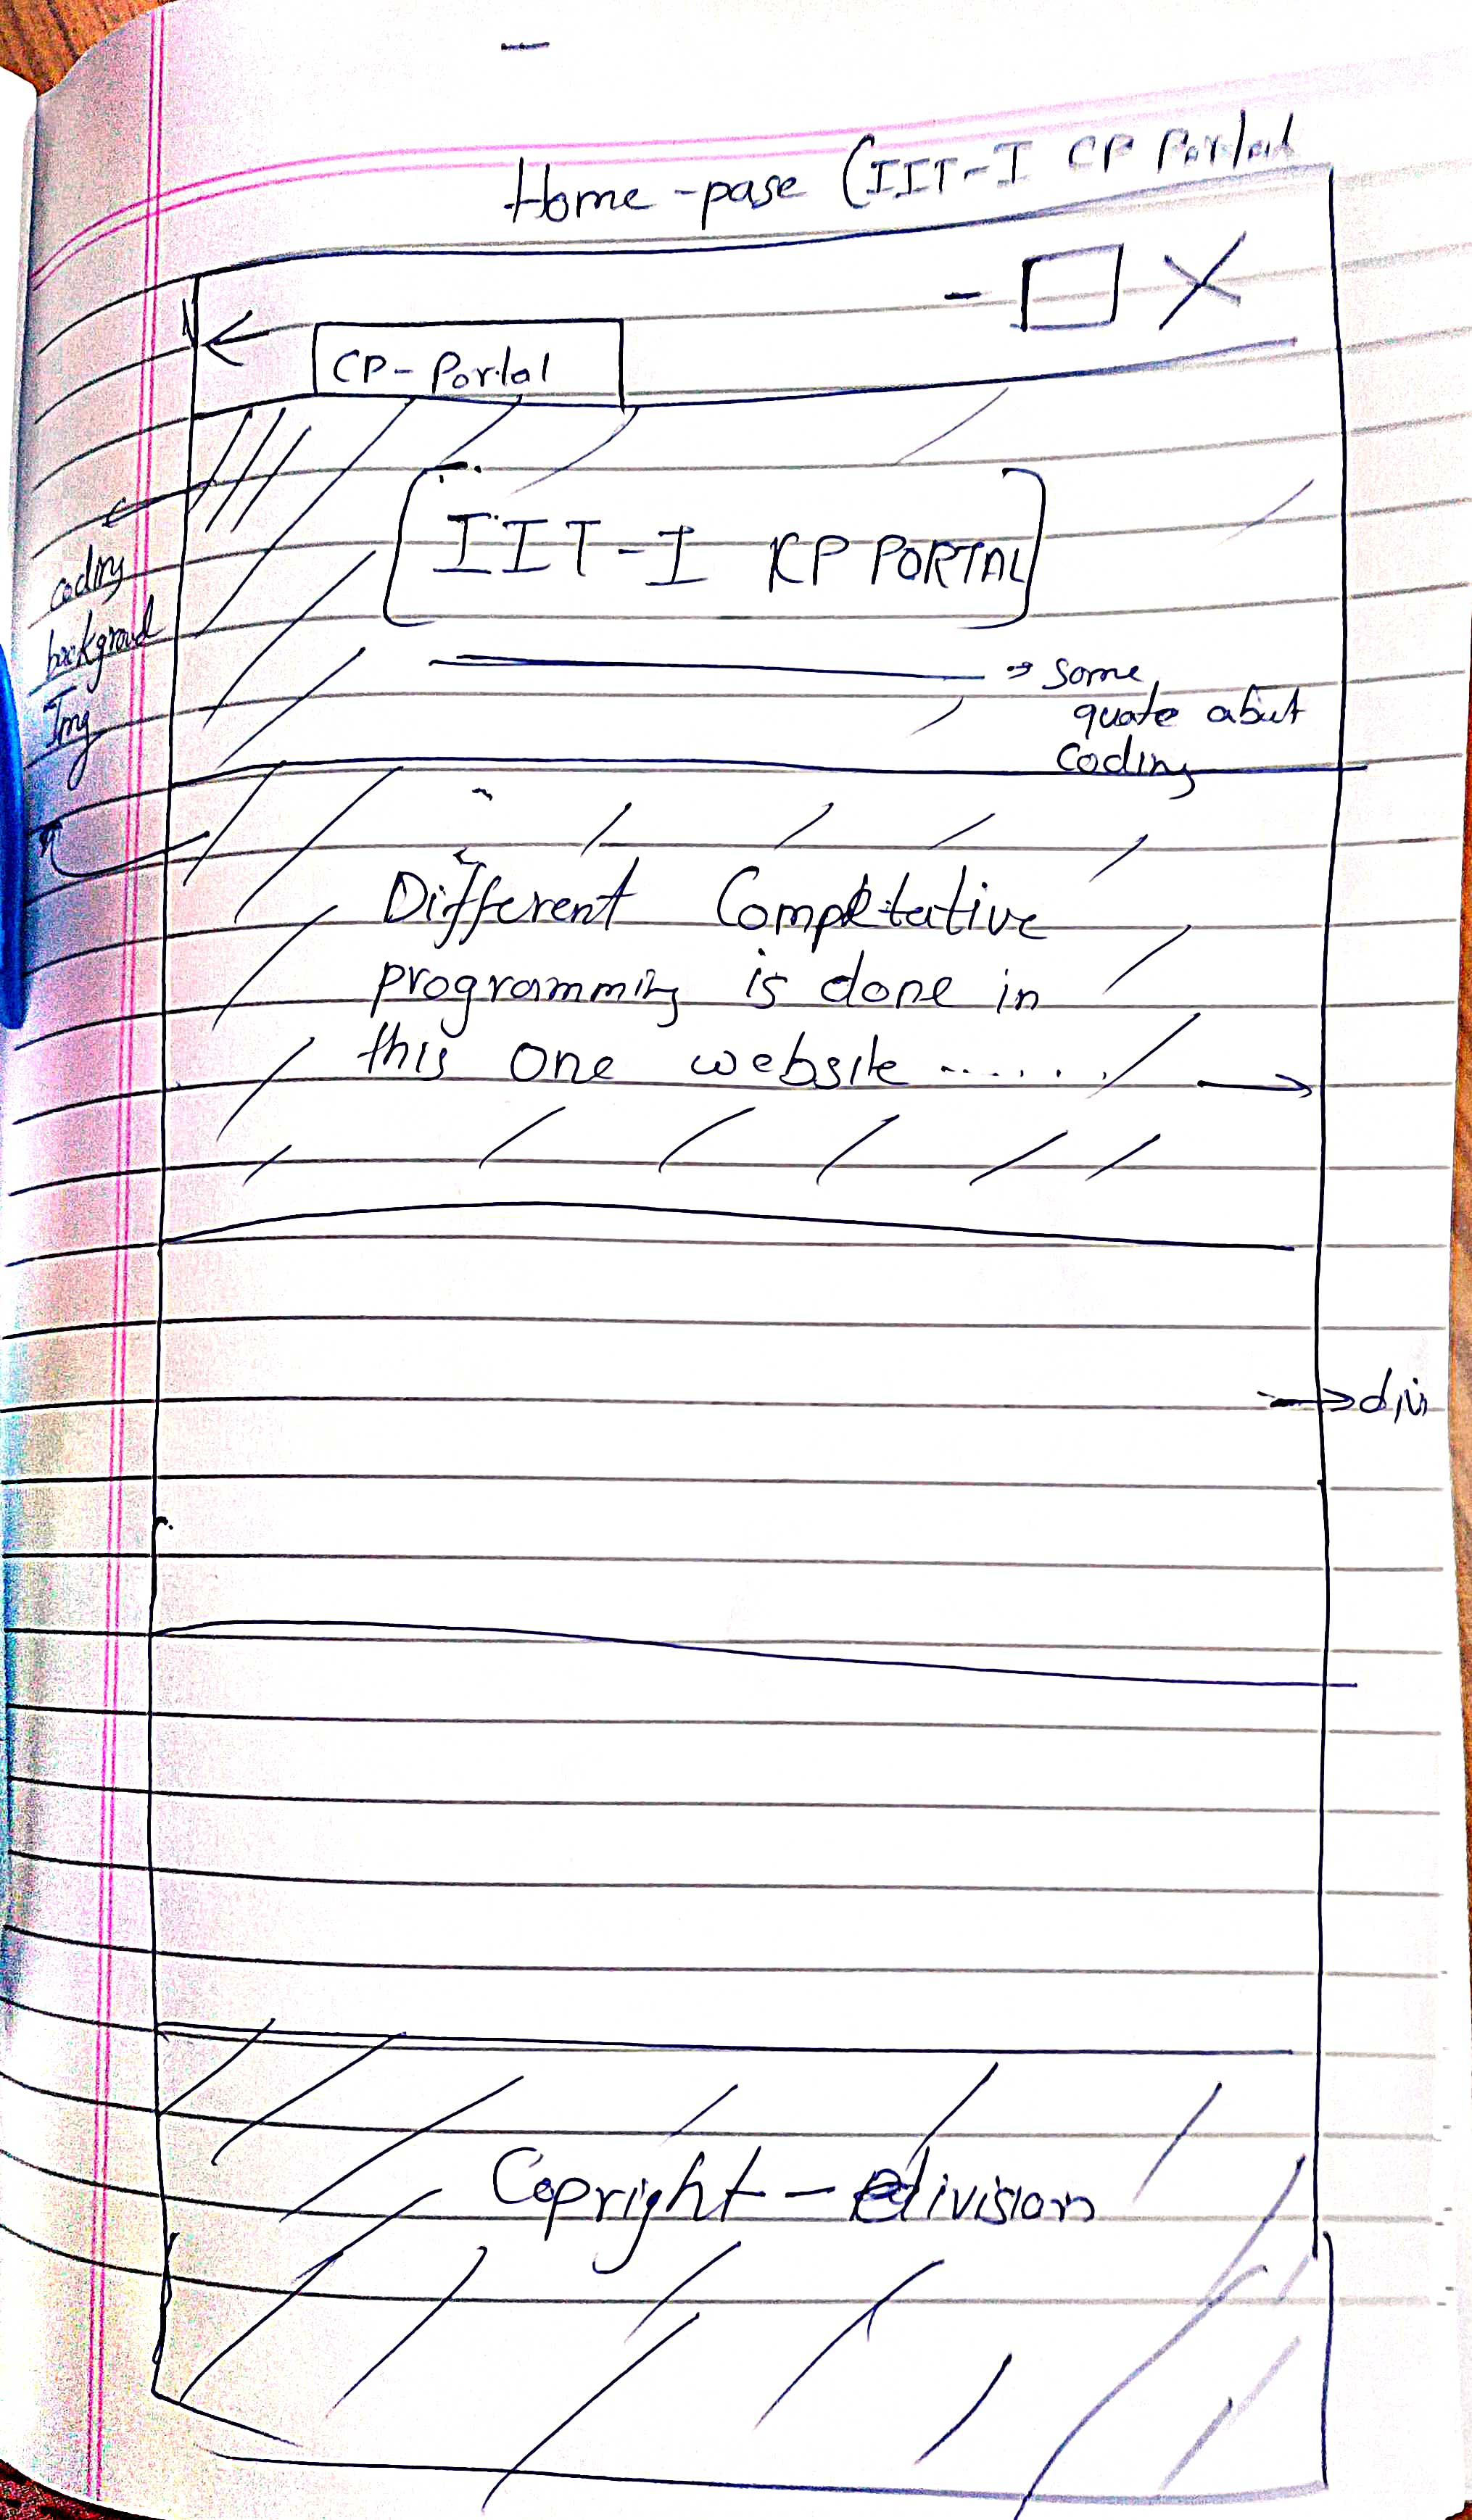 Home-page (IIT-I CP Portal
CP-Portal
IIT-I CP PORTAL
coding
background
Img
some
quote about
coding
Different Competative
programming is done in
this one website ......
div
Copright-division